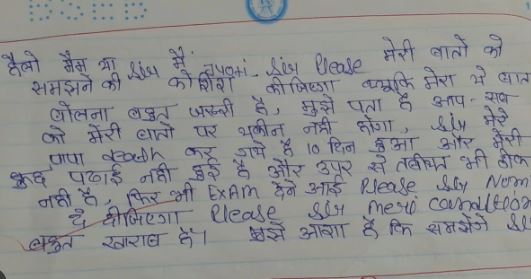 हैलो मैम या Sir मैं Jyoti. Sir Please मेरी बातों को
समझने की कोशिश कीजिएगा क्योंकि मेरा ये बात
बोलना बहुत जरूरी है, मुझे पता है आप सब
को मेरी बातों पर यकीन नहीं होगा, Sir मेरे
पापा death कर गये हैं 10 दिन हुआ और मेरी
कुछ पढाई नहीं हुई है और उपर से तबीयत भी ठीक
नहीं है, फिर भी EXAM देने आई Please Sir
दे दीजिएगा Please Sir meri condition
बहुत खराब है। मुझे आशा है कि समझेंगे